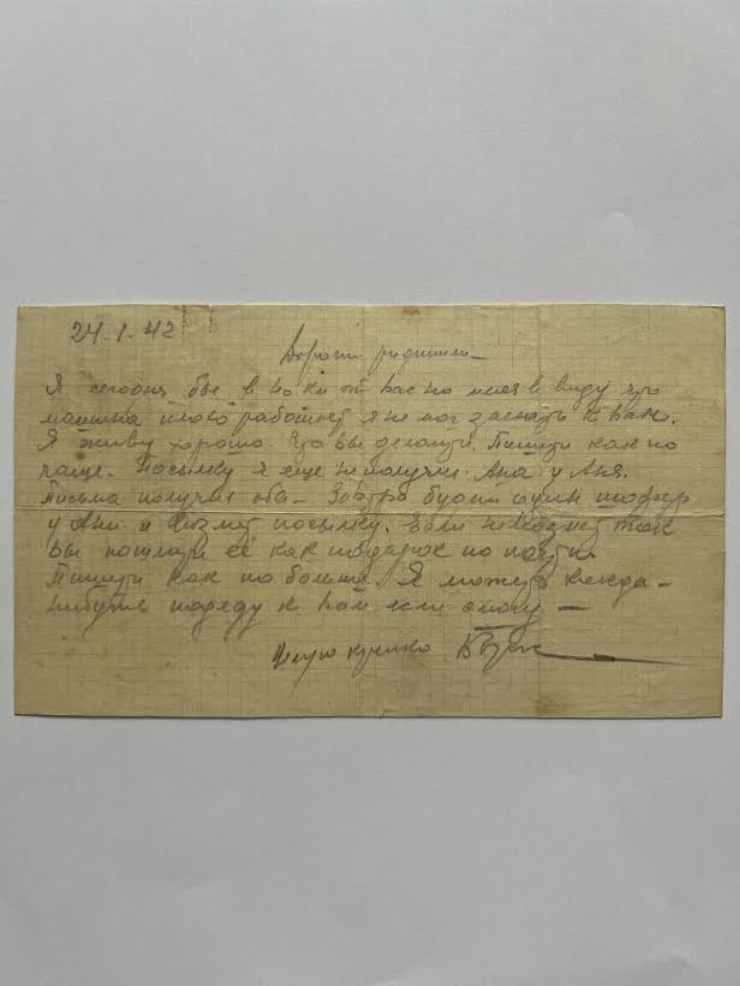 24.1.42
Дорогие родители
Я сегодня был в 40 км от вас но имея в виду что
машина плохо работает я не мог заехать к вам.
Я живу хорошо. Что вы делаете. Пишите как по
чаще. Посылку я еще не получил. Она у Ани.
Письма получил оба. Завтра будет один шофер
у Ани и возмет посылку. Если не возмет так
вы пошлите её как подарок по почти
Пишите как по больше. Я может когда-
нибудь подеду к вам если смогу —
Целую крепко